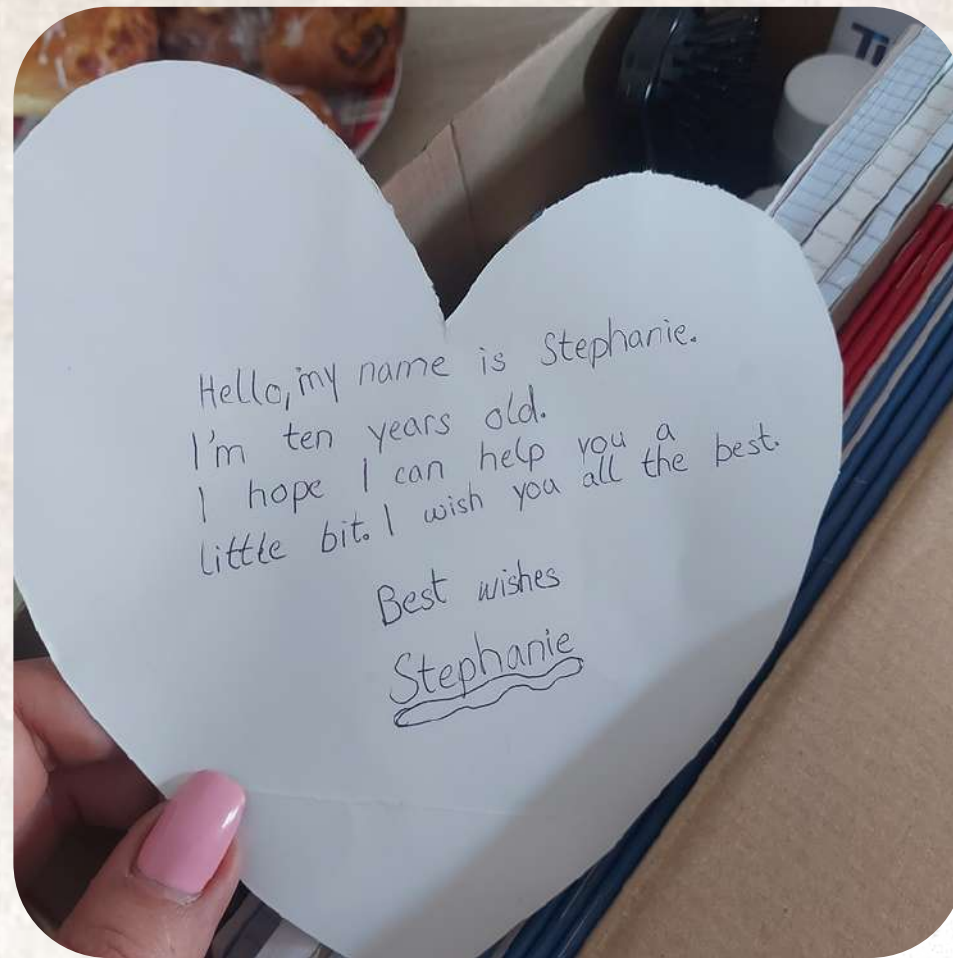 Ti
Hello, my name is Stephanie.
I'm ten years old.
I hope I can help you a
little bit. I wish you all the best.
Best wishes
Stephanie